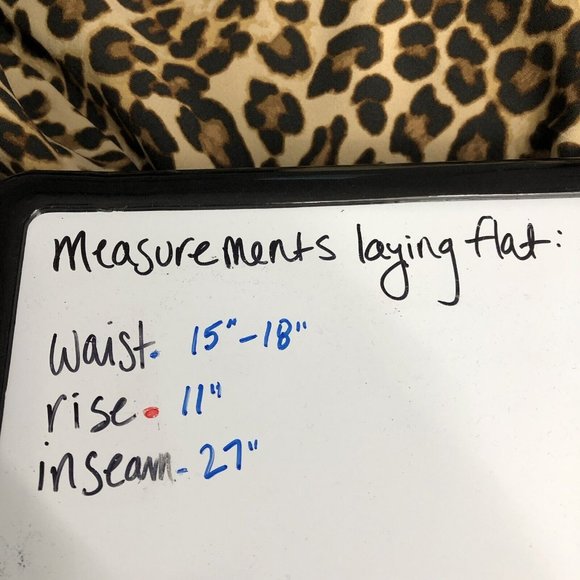 Measurements laying flat:
waist. 15"-18"
rise. 11"
inseam- 27"